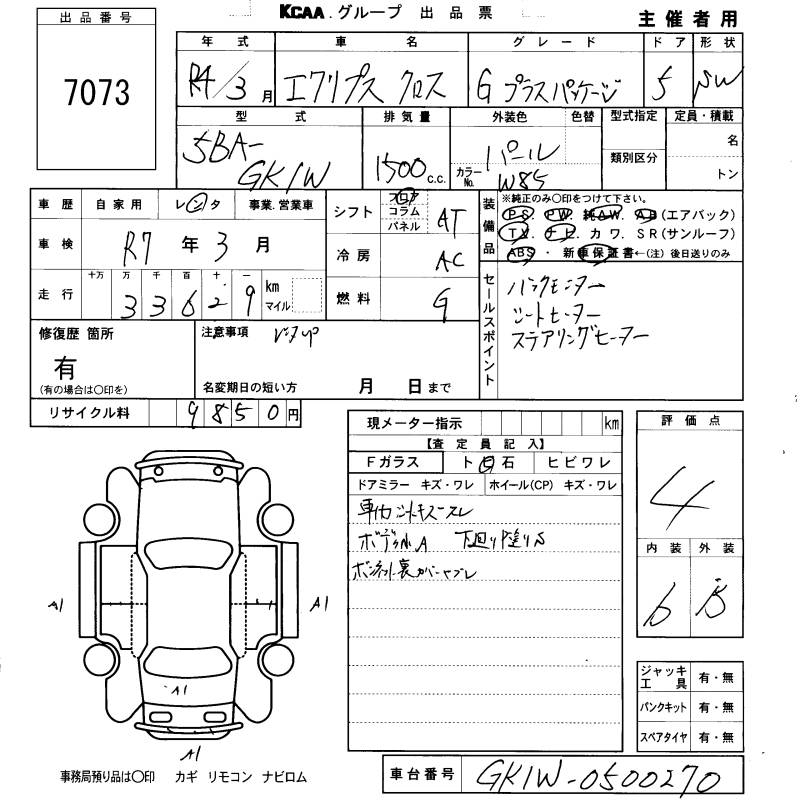 KCAA.グループ 出品票
主催者用
出品番号
7073
年式 車名 グレード ドア 形状
R4/3月 エクリプス クロス G プラスパッケージ 5 SW
型式 排気量 外装色 色替 型式指定 定員・積載
5BA-
GK1W
1500 c.c.
パール
カラーNo. W85
類別区分
名
トン
車歴 自家用 レンタ 事業.営業車
車検 R7年3月
走行 十万 万 千 百 十 一
33629 km
マイル
シフト フロア コラム パネル AT
冷房 AC
燃料 G
装備品
※純正のみ○印をつけて下さい。
PS. PW. 純AW. AB(エアバック)
TV. ナビ. カワ. SR(サンルーフ)
ABS・新車保証書←(注)後日送りのみ
セールスポイント
バックモニター
シートヒーター
ステアリングヒーター
修復歴 箇所
有
(有の場合は○印を)
注意事項
名変期日の短い方 月 日まで
リサイクル料 9850円
現メーター指示 km
【査定員記入】
Fガラス ト 石 ヒビワレ
ドアミラー キズ・ワレ ホイール(CP) キズ・ワレ
車内シートキズスレ
A 下回り
裏カバー
評価点
4
内装 外装
6 B
ジャッキ
工具 有・無
パンクキット 有・無
スペアタイヤ 有・無
R F
A1
A1
A1
A1
事務局預り品は○印 カギ リモコン ナビロム
車台番号 GK1W-0500270